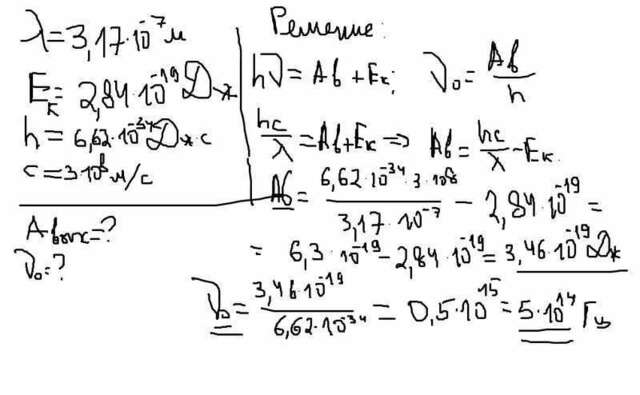 λ = 3,17·10⁻⁷ м
Eк = 2,84·10⁻¹⁹ Дж
h = 6,62·10⁻³⁴ Дж с
c = 3·10⁸ м/с
Aвых = ?
ν₀ = ?
Решение:
hν = Aв + Eк; ν₀ = Aв/h
hc/λ = Aв + Eк ⇒ Aв = hc/λ − Eк
Aв = (6,62·10⁻³⁴·3·10⁸)/(3,17·10⁻⁷) − 2,84·10⁻¹⁹ =
= 6,3·10⁻¹⁹ − 2,84·10⁻¹⁹ = 3,46·10⁻¹⁹ Дж
ν₀ = (3,46·10⁻¹⁹)/(6,62·10⁻³⁴) = 0,5·10¹⁵ = 5·10¹⁴ Гц